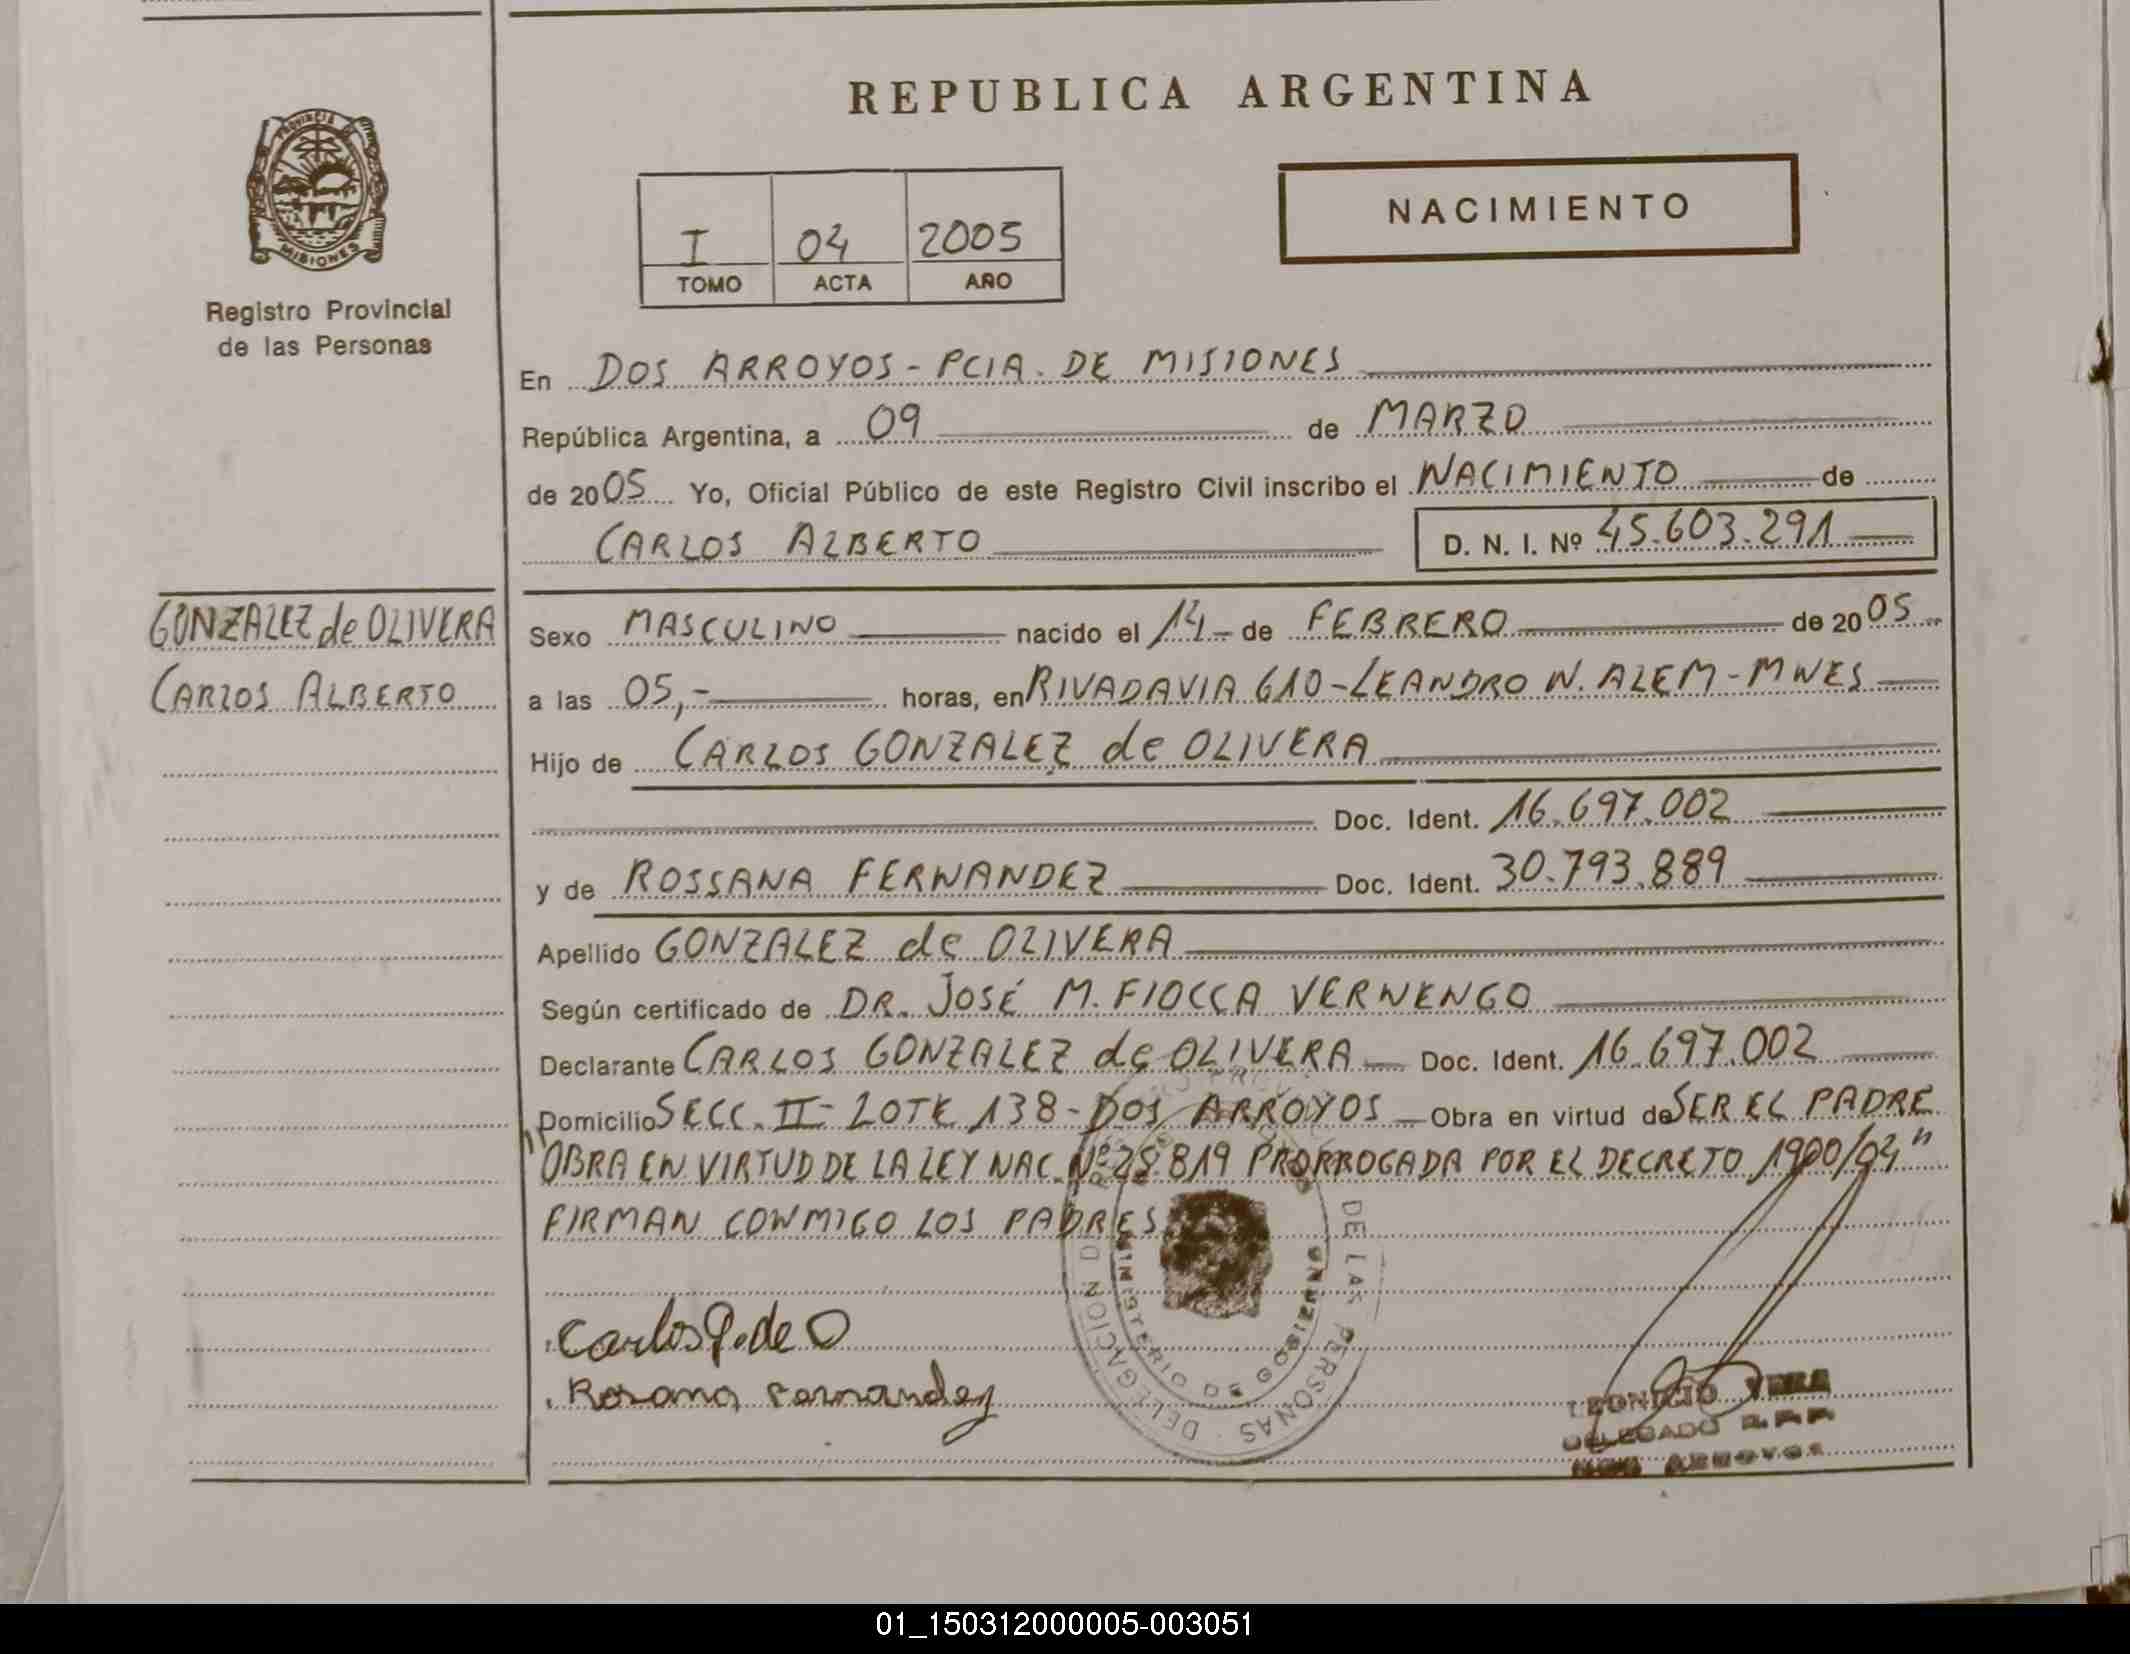 REPUBLICA ARGENTINA
PROVINCIA DE
MISIONES
Registro Provincial
de las Personas
I 04 2005
TOMO ACTA AÑO
NACIMIENTO
En DOS ARROYOS - PCIA. DE MISIONES
República Argentina, a 09 de MARZO
de 2005 Yo, Oficial Público de este Registro Civil inscribo el NACIMIENTO de
CARLOS ALBERTO D. N. I. Nº 45.603.291
GONZALEZ de OLIVERA
CARLOS ALBERTO
Sexo MASCULINO nacido el 14 - de FEBRERO de 2005
a las 05,- horas, en RIVADAVIA 610 - LEANDRO N. ALEM - MNES
Hijo de CARLOS GONZALEZ de OLIVERA
Doc. Ident. 16.697.002
y de ROSSANA FERNANDEZ Doc. Ident. 30.793.889
Apellido GONZALEZ de OLIVERA
Según certificado de DR. JOSÉ M. FIOCCA VERNENGO
Declarante CARLOS GONZALEZ de OLIVERA Doc. Ident. 16.697.002
Domicilio SECC. II - LOTE 138 - DOS ARROYOS Obra en virtud de SER EL PADRE
"OBRA EN VIRTUD DE LA LEY NAC. Nº 25.819 PRORROGADA POR EL DECRETO 1900/04"
FIRMAN CONMIGO LOS PADRES
Carlos G. de O
Rosana Fernandez
DE LAS PERSONAS · DELEGACION
MINISTERIO DE GOBIERNO
LEONICIO VERA
DELEGADO R.P.P.
DOS ARROYOS
01_150312000005-003051